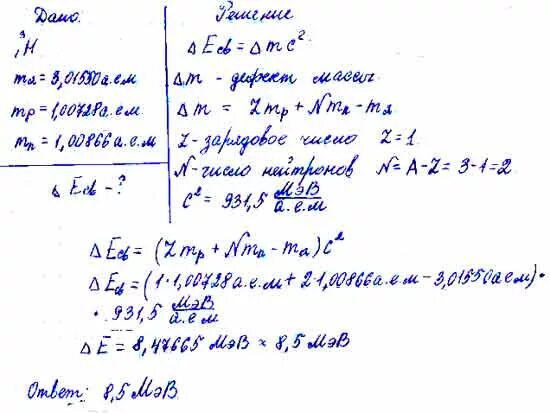 Дано:
³₁H
mя = 3,01550 а.е.м
mp = 1,00728 а.е.м.
mn = 1,00866 а.е.м
Δ Eсв - ?
Решение
Δ Eсв = Δ m c²
Δ m - дефект массы.
Δ m = Z mp + N mn - mя
Z - зарядовое число Z = 1
N - число нейтронов N = A - Z = 3 - 1 = 2
C² = 931,5 МэВ/а.е.м
Δ Eсв = (Z mp + N mn - mя) c²
Δ Eсв = (1·1,00728 а.е.м + 2·1,00866 а.е.м - 3,01550 а.е.м) ·
· 931,5 МэВ/а.е.м
Δ E = 8,47665 МэВ ≈ 8,5 МэВ
Ответ: 8,5 МэВ.